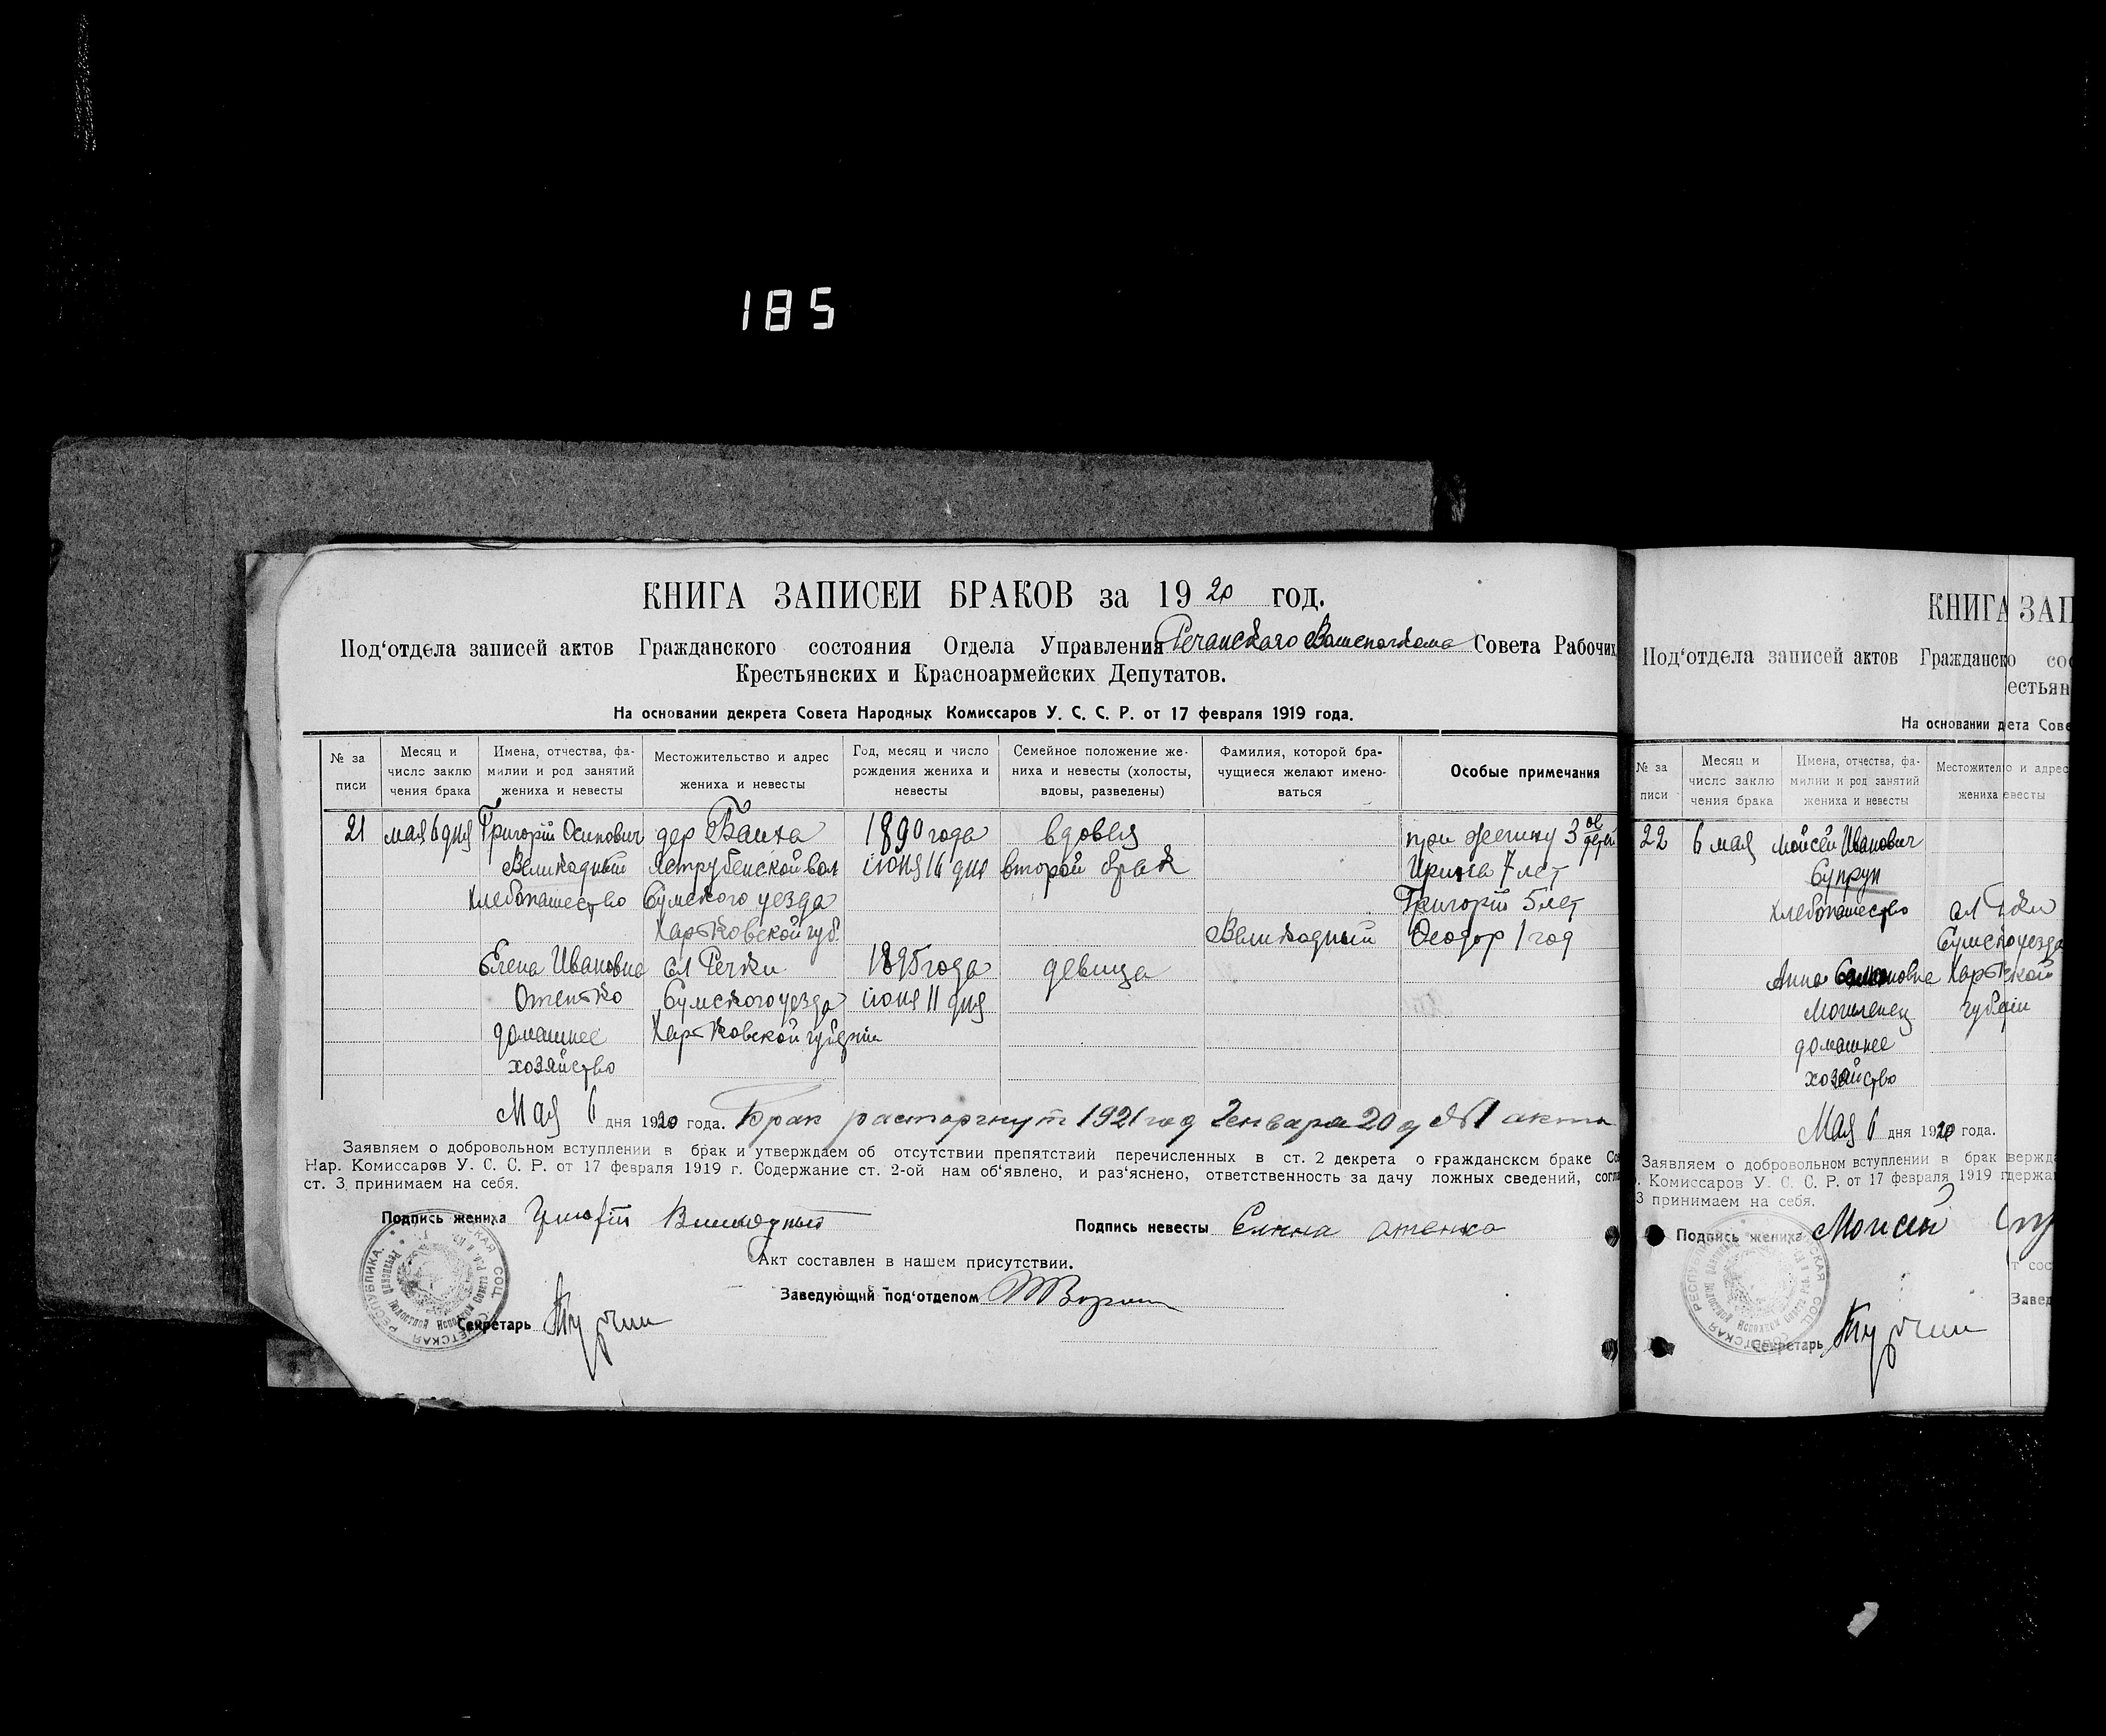 185
КНИГА ЗАПИСЕЙ БРАКОВ за 1920 год.
Под‘отдела записей актов Гражданского состояния Отдела Управления Речанского Волисполкома Совета Рабочих,
Крестьянских и Красноармейских Депутатов.
На основании декрета Совета Народных Комиссаров У. С. С. Р. от 17 февраля 1919 года.
№ записи
Месяц и число заключения брака
Имена, отчества, фамилии и род занятий жениха и невесты
Местожительство и адрес жениха и невесты
Год, месяц и число рождения жениха и невесты
Семейное положение жениха и невесты (холосты, вдовы, разведены)
Фамилия, которой брачущиеся желают именоваться
Особые примечания
21 мая 6 дня Григорій Осипович дер 1890 года вдовец при жениху 3 ое детей
Великодный Яструбенской вол июня 16 дня второй брак Ирина 7 лет
Хлебопашество Сумского уезда Григорій 5 лет
Харьковской губ. Великодный Феодор 1 год
Елена Ивановна сл Речки 1895 года девица
Отенко Сумского уезда июня 11 дня
домашнее Харьковской губернии
хозяйство
Мая 6 дня 1920 года. Брак расторгнут 1921 год Генваря 20 д №1 акта
Заявляем о добровольном вступлении в брак и утверждаем об отсутствии препятствий перечисленных в ст. 2 декрета о гражданском браке Со
Нар. Комиссаров У. С. С. Р. от 17 февраля 1919 г. Содержание ст. 2-ой нам об‘явлено, и раз‘яснено, ответственность за дачу ложных сведений, согла
ст. 3 принимаем на себя.
Подпись жениха Григорій Великодный
Подпись невесты Елена Отенко
Акт составлен в нашем присутствии.
Заведующий под‘отделом
Секретарь
КНИГА ЗАП
Под‘отдела записей актов Гражданско сос
естьян
На основании дета Сове
№ записи
Месяц и число заключения брака
Имена, отчества, фамилии и род занятий жениха и невесты
Местожителю и адрес
жениха евесты
22 6 мая Мойсей Иванович
Супрун
хлебопашество
Сумского уезда
Анна
домашнее
хозяйство
Мая 6 дня 1920 года.
Заявляем о добровольном вступлении в брак вержда
. Комиссаров У. С. С. Р. от 17 февраля 1919 гдержа
3 принимаем на себя.
Подпись жениха Моисей
т сос
Завед
Секретарь